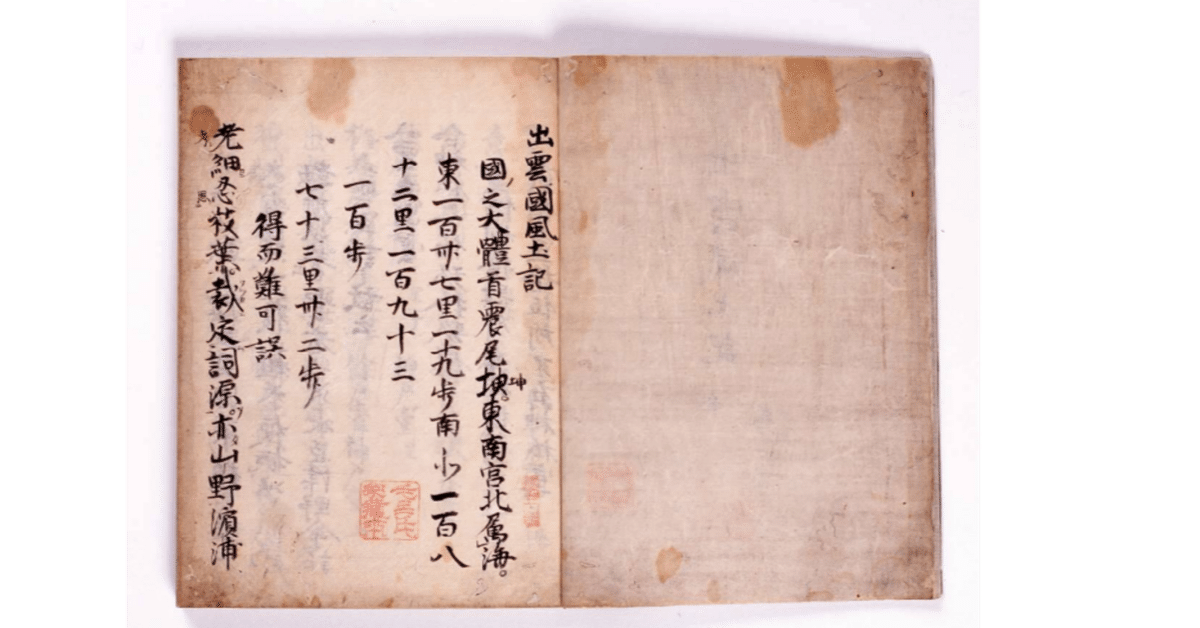 出雲國風土記
國之大體首震尾坤東南宮北属海。
東一百卅七里一十九歩南北一百八
十二里一百九十三
一百歩
七十三里卅二歩
得而難可誤
老細思枝葉裁定詞源亦山野濱浦